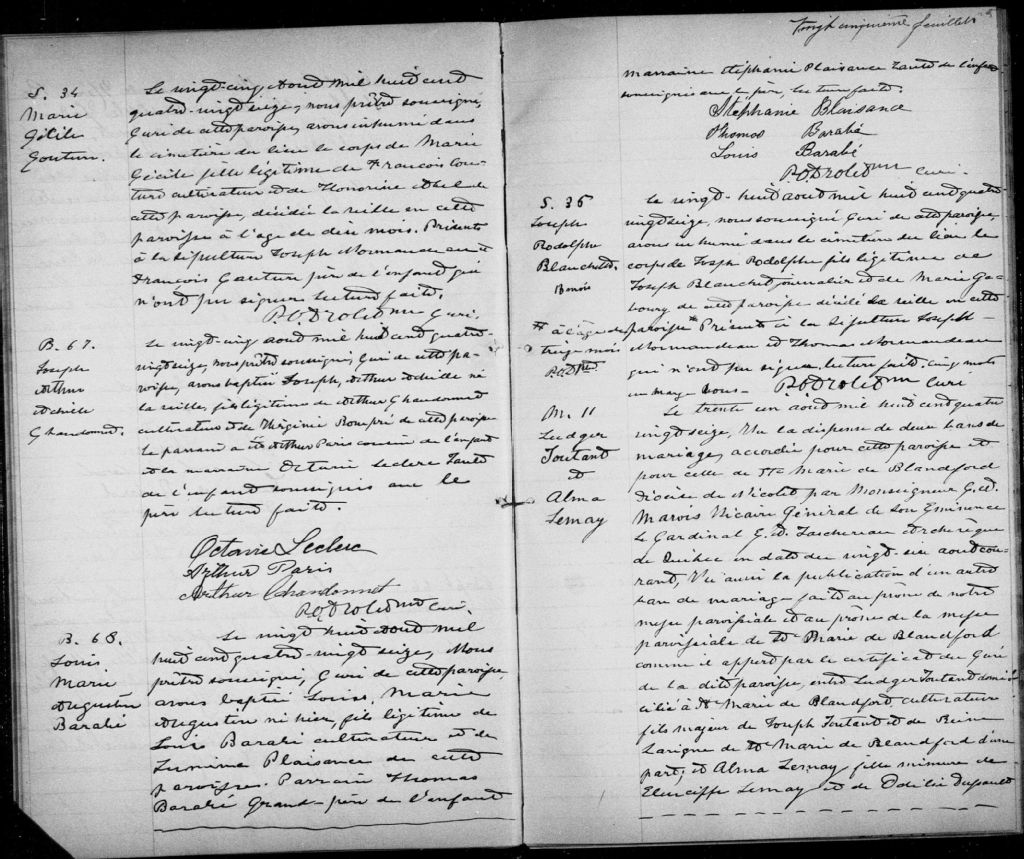 S. 34
Marie
Cécile
Couture.
Le vingt-cinq Aout mil huit cent
quatre-vingt seize, nous prêtre soussigné,
Curé de cette paroisse, avons inhumé dans
le cimetière du lieu le corps de Marie
Cécile fille légitime de François Cou-
ture cultivateur et de Honorine de
cette paroisse, décédée la veille en cette
paroisse à l'age de deux mois. Présents
à la sépulture Joseph Normandeau et
François Couture père de l'enfant qui
n'ont pu signer lecture faite.
Ptre Curé.
B. 67.
Joseph
Arthur
Achille
Chandonnet.
Le vingt-cinq aout mil huit cent quatre-
vingt seize, nous prêtre soussigné, Curé de cette pa-
roisse, avons baptisé Joseph, Arthur Achille né
la veille, fils légitime de Arthur Chandonnet
cultivateur et de Virginie Rompré de cette paroisse
Le parrain a été Arthur Paris cousin de l'enfant
et la marraine Octavie Leclerc Tante
de l'enfant soussignés avec le
père lecture faite.
Octavie Leclerc
Arthur Paris
Arthur Chandonnet
Ptre Curé.
B. 68.
Louis
Marie
Augustin
Barabé
Le vingt huit Aout mil
huit cent quatre-vingt seize, Nous
prêtre soussigné, Curé de cette paroisse,
avons baptisé Louis, Marie
Augustin né hier, fils légitime de
Louis Barabé cultivateur et de
Plaisance de cette
paroisse. Parrain Thomas
Barabé Grand-père de l'enfant
Vingt cinquième feuillet
marraine Stéphanie Plaisance Tante de l'enfant
soussignés avec le père, lecture faite.
Stéphanie Plaisance
Thomas Barabé
Louis Barabé
Ptre Curé.
S. 35
Joseph
Rodolphe
Blanchet
Le vingt-huit aout mil huit cent quatre
vingt seize, nous soussigné Curé de cette paroisse,
avons inhumé dans le cimetière du lieu le
corps de Joseph Rodolphe fils légitime de
Joseph Blanchet journalier et de Marie Ga-
boury de cette paroisse décédé la veille en cette
paroisse * Présents à la sépulture Joseph
Normandeau et Thomas Normandeau
qui n'ont pu signer lecture faite, cinq mots
en marge bons. Ptre Curé
* à l'âge de
treize mois
Ptre
M. 11
Ludger
Toutant
et
Alma
Lemay
Le trente un aout mil huit cent quatre
vingt seize, Vu la dispense de deux bans de
mariage, accordée pour cette paroisse et
pour celle de Ste Marie de Blandford
diocèse de Nicolet par Monseigneur C. A.
Marois Vicaire Général de Son Eminence
Le Cardinal E. A. Taschereau Archevêque
de Québec en date du vingt-six aout cou-
rant, Vu aussi la publication d'un autre
ban de mariage faite au prône de notre
messe paroissiale et au prône de la messe
paroissiale de Ste Marie de Blandford
comme il appert par le certificat du Curé
de la dite paroisse, entre Ludger Toutant domi-
cilié à Ste Marie de Blandford, cultivateur
fils majeur de Joseph Toutant et de Reine
Lavigne de Ste Marie de Blandford d'une
part; et Alma Lemay fille mineure de
Eleucippe Lemay et de Odélie Dusault